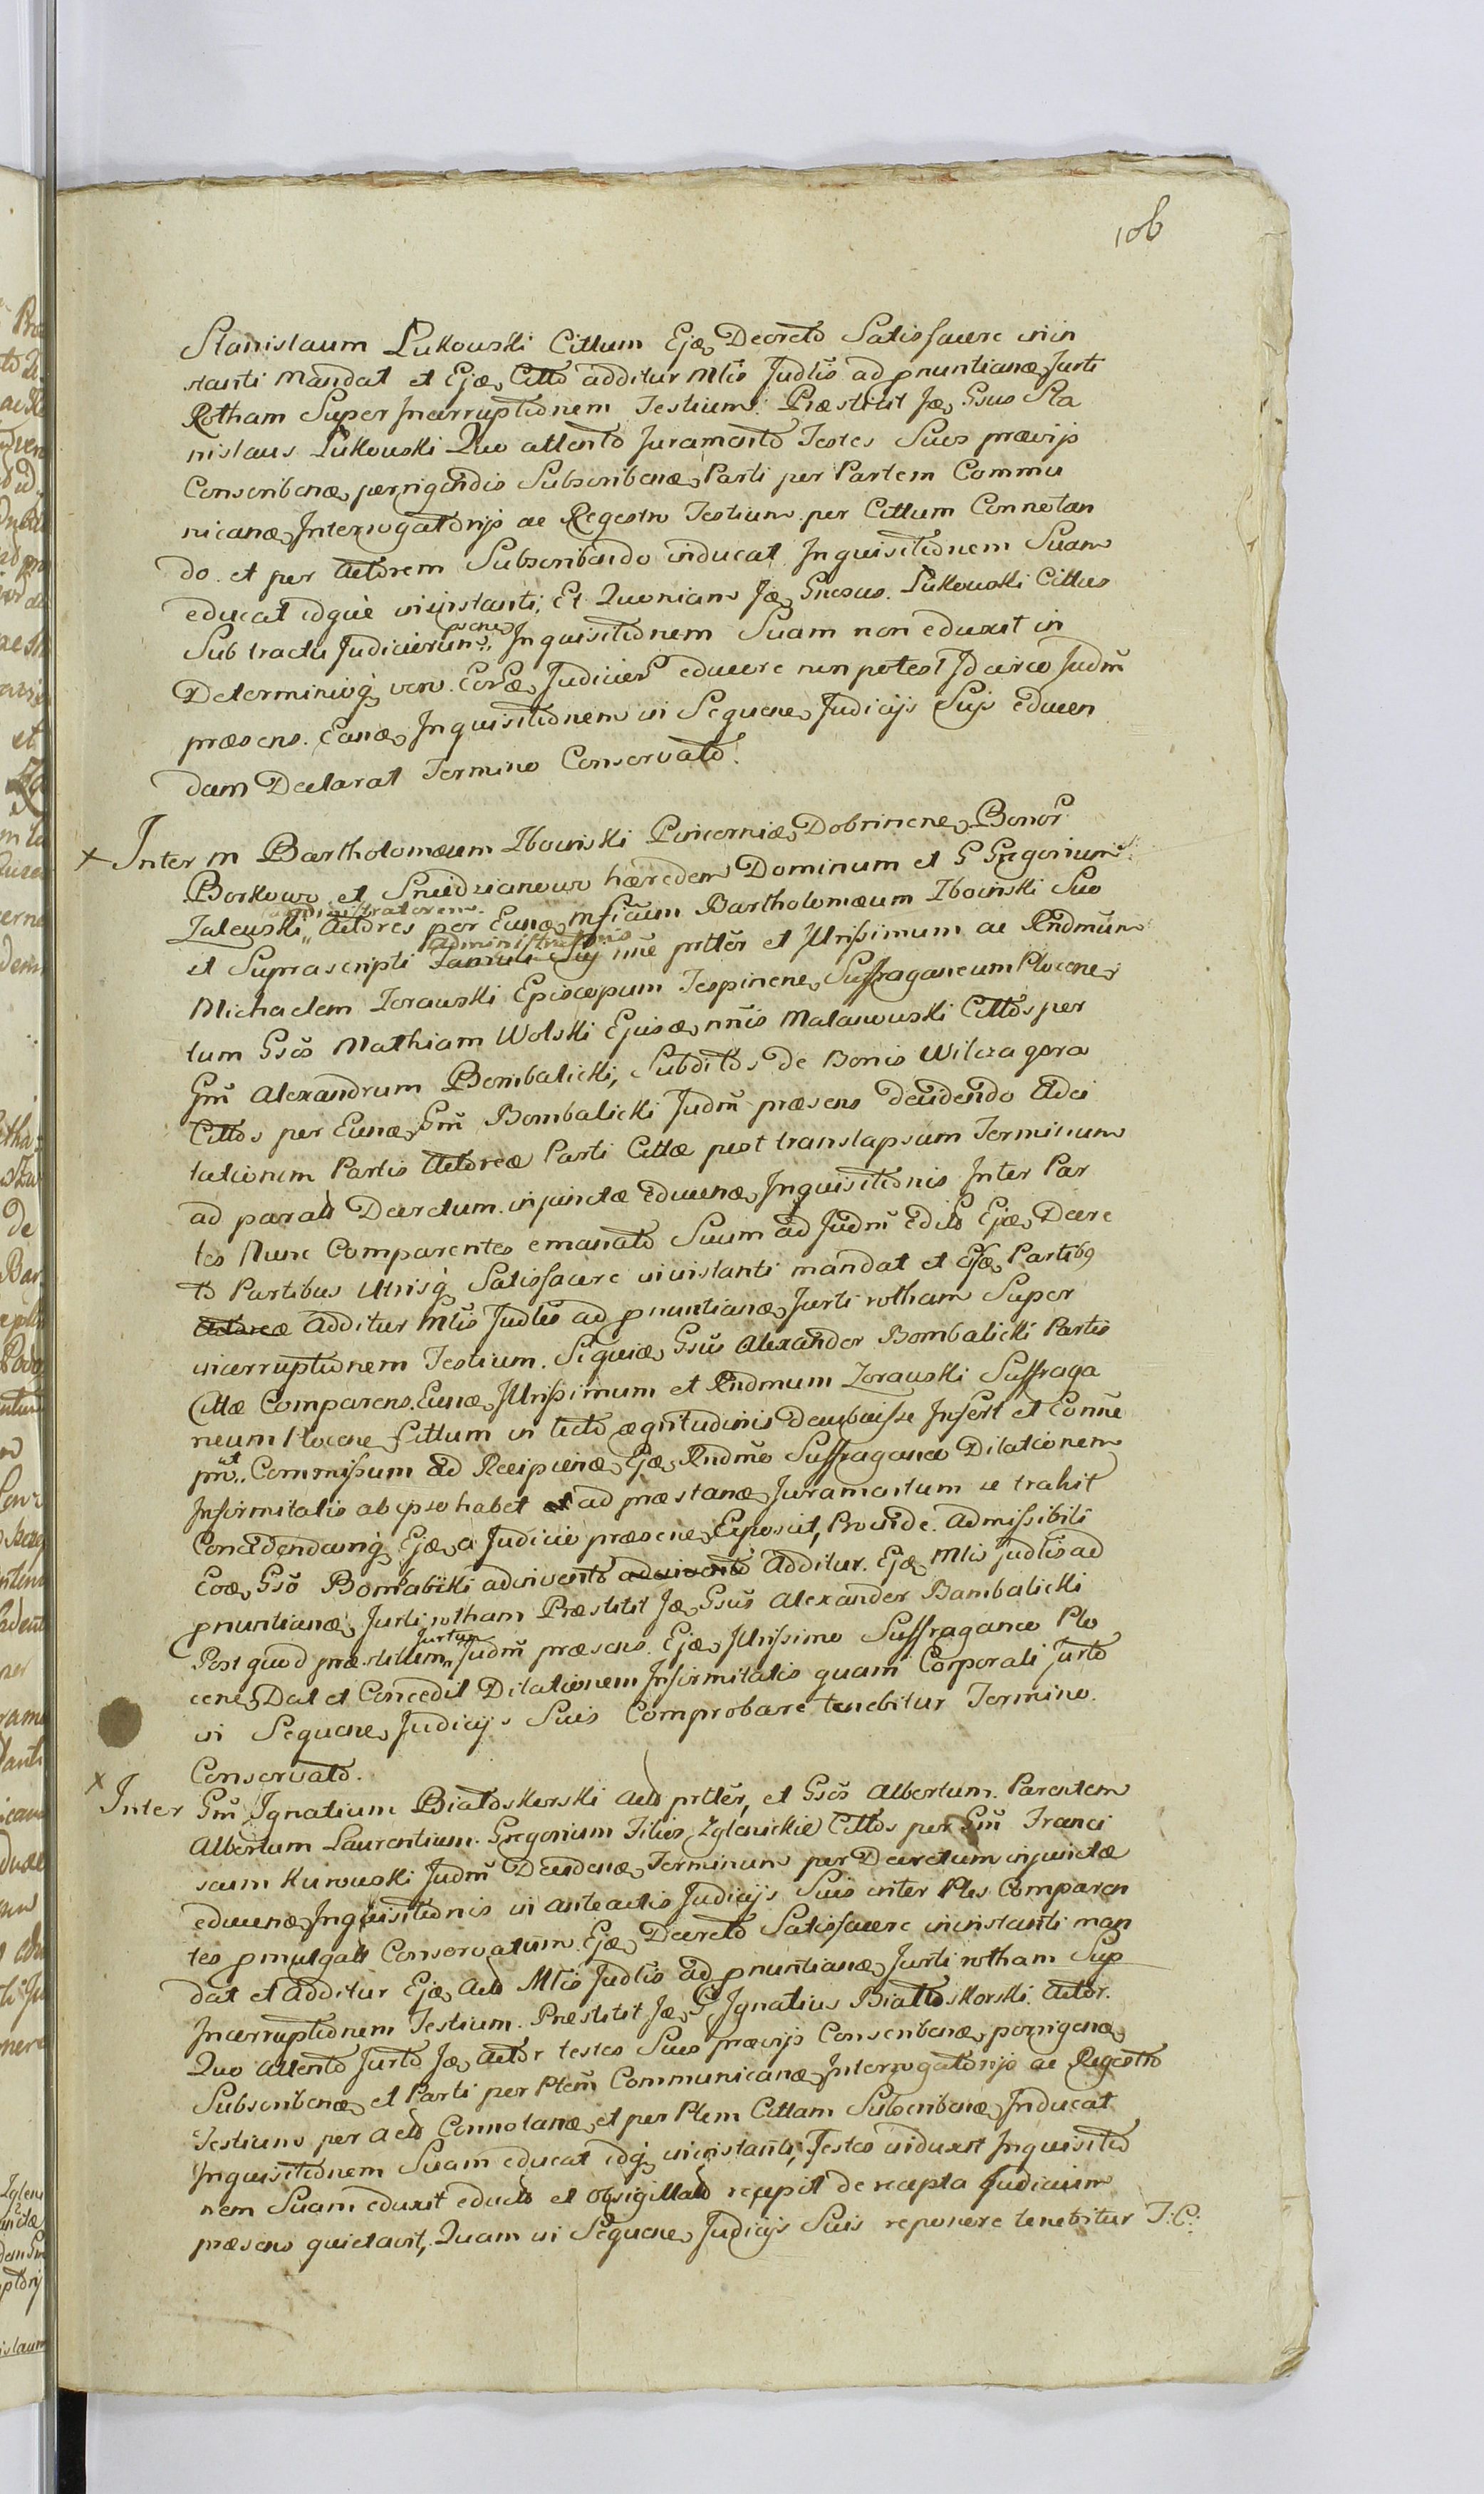 106
Stanislaum Łukowski Cittum Ejꝫ Decreto Satisfacere in in
stanti Mandat et Ejꝫ Citto additur Mtis Judlis ad pnuntianꝫ Jurti
Rotham Super Incorruptionem Testium. Præstitit Jꝫ Gsus Sta
nislaus Łukowski Quo attento Juramento Testes Suos prævijs
Conscribenꝫ porrigendis Subscribenꝫ Parti per Partem Commu
nicanꝫ Interrogatorijs ac Regestro Testium per Cittum Connotan
do et per Actorem Subscribendo inducat Inquisitionem Suam
educat idque in instanti, Et Quoniam Jꝫ Gnosus Łukowski Cittus
Sub tractu Judiciorum psenꝫ Inquisitionem Suam non eduxit in
Determinioq vero Judicior educere non potest Idcirco Judm
præsens Eanꝫ Inquisitionem in Sequenꝫ Judicijs Suis educen
dam Declarat Termino Conservato.
x Inter M Bartholomæum Zboinski Pincernia Dobrinenꝫ Bonor
Borkowo et Sniedzianowo hæredem Dominum et G Gregorium
Zaleuski administratorem Actores per Eunꝫ Mficum Bartholomæum Zboinski Suo
et Suprascripti Administratoris Sui nne prtter et Illrissimum ac Rndmum
Michaelem Zorawski Episcopum Tespinenꝫ Suffraganeum Plocenꝫ
tum Gsos Mathiam Wolski Ejusꝫ nnis Malanowski Cittos per
Gm Alexandrum Bombalicki, Subditos de Bonis Wilcza gora
Cittos per Eunꝫ Gm Bombalicki Judm præsens decidendo Adci
tationem Partis Actoreæ Parti Cittæ post translapsum Terminum
ad parati Decretum injunctæ educenꝫ Inquisitionis Inter Par
tes Nunc Comparentes emanato Suum ad Judm Edito Ejꝫ Decre
to Partibus Utrisq Satisfacere in instanti mandat et Partibq
Actoreæ additur Mtis Judlis ad pnuntianꝫ Jurti rotham Super
incorruptionem Testium. Siquiꝫ Gsus Alexander Bombalicki Partis
Cittæ Comparens Eunꝫ Illrissimum et Rndmum Zorawski Suffraga
neum Plocenꝫ Cittum in lecto ægritudinis decubuisse Infert et
Commissum ad Recipienꝫ Ejꝫ Rndmo Suffraganeo Dilationem
Infirmitatis ab ipso habet et ad præstanꝫ Juramentum se trahit
Concedendamq Ejꝫ a Judicio præsenꝫ Exposcit, Proinde Admissibili
Eoꝫ Gso Bombalicki adinvento adinvento Additur Ejꝫ Mtis judlis ad
pnuntianꝫ Jurti rotham Præstitit Jꝫ Gsus Alexander Bambalicki
Post quod præstitum Jurtum Judm præsens Ejꝫ Illrissimo Suffraganeo Plo
cenꝫ Dat et Concedit Dilationem Infirmitatis quam Corporali Jurto
in Sequenꝫ Judicijs Suis Comprobare tenebitur Termino
Conservato.
x Inter Gm Ignatium Białoskorski Acto prtter, et Gsos Albertum Parentem
Albertum Laurentium Gregorium Filios Zglenickie Cittos per Gm Franci
scum Kurowski Judm Decidenꝫ Terminum per Decretum injunctæ
educenꝫ Inquisitionis in anteactis Judicijs Suis inter Ptes Comparen
tes pmulgati Conservatum Ejꝫ Decreto Satisfacere in instanti man
dat et Additur Ejꝫ Acto Mtis Judlis ad pnuntianꝫ Jurti rotham Sup
Incorruptionem Testium. Præstitit Jꝫ G Ignatius Białłoskorski Actor.
Quo attento Jurto Jꝫ Actor testes Suos prævijs Conscribenꝫ porrigenꝫ
Subscribenꝫ et Parti per Ptem Communicanꝫ Interrogatorijs ac Regestro
Testium per Acto Connotanꝫ et per Ptem Cittam Subscribenꝫ Inducat
Inquisitionem Suam educat idq in instanti, Testes induxit Inquisitio
nem Suam eduxit educto et obsigillato recepit de recepta Judicium
præsens quietavit, Quam in Sequenꝫ Judicijs Suis reponere tenebitur T: C: